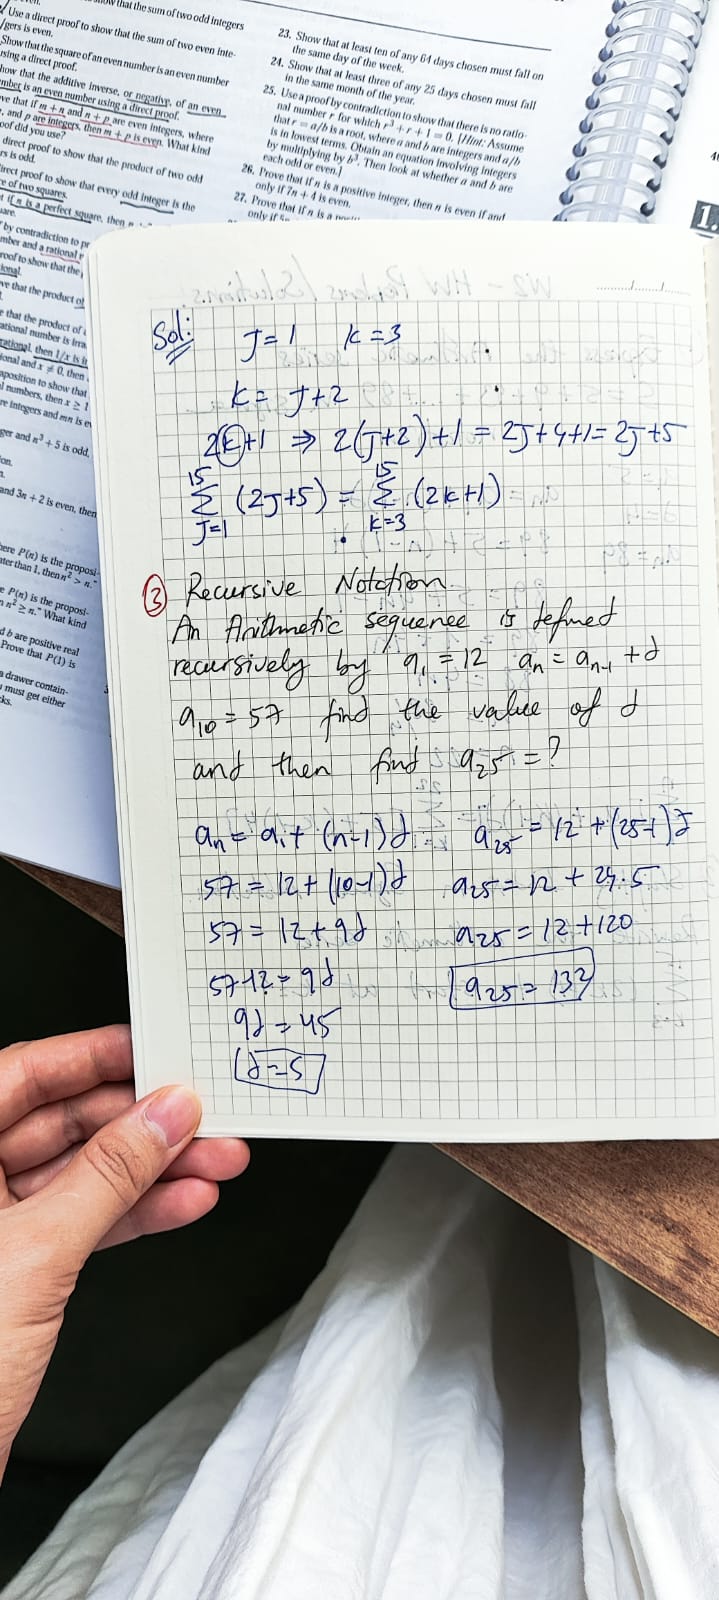 Use a direct proof to show that the sum of two even inte-
gers is even.
Show that the square of an even number is an even number
using a direct proof.
how that the additive inverse, or negative, of an even
mber is an even number using a direct proof.
ve that if m + n and n + p are even integers, where
, and p are integers, then m + p is even. What kind
oof did you use?
direct proof to show that the product of two odd
rs is odd.
irect proof to show that every odd integer is the
e of two squares.
t if n is a perfect square, then n
by contradiction to pr
mber and a rational
roof to show that the
ional.
ve that the product of
e that the product of
ational number is irra
rational, then 1/x is
ional and x ≠ 0, then
aposition to show that
l numbers, then x ≥ 1
re integers and mn is ev
ger and n³ + 5 is odd,
on.
and 3n + 2 is even, then
here P(n) is the proposi-
ater than 1, then n² > n.”
e P(n) is the proposi-
n n² ≥ n.” What kind
d b are positive real
Prove that P(1) is
a drawer contain-
u must get either
ks.
23. Show that at least ten of any 64 days chosen must fall on
the same day of the week.
24. Show that at least three of any 25 days chosen must fall
in the same month of the year.
25. Use a proof by contradiction to show that there is no ratio-
nal number r for which r³ + r + 1 = 0. [Hint: Assume
that r = a/b is a root, where a and b are integers and a/b
is in lowest terms. Obtain an equation involving integers
by multiplying by b³. Then look at whether a and b are
each odd or even.]
26. Prove that if n is a positive integer, then n is even if and
only if 7n + 4 is even.
27. Prove that if n is a
only if 5n
1.
Sol:
J=1 k=3
k= J+2
2k+1 ⇒ 2(J+2)+1 = 2J+4+1= 2J+5
15 15
Σ (2J+5) = Σ (2k+1)
J=1 k=3
③ Recursive Notation
An Arithmetic sequence is defined
recursively by a₁ = 12 aₙ = aₙ₋₁ + d
a₁₀ = 57 find the value of d
and then find a₂₅ = ?
aₙ = a₁ + (n-1)d
57 = 12 + (10-1)d
57 = 12 + 9d
57-12 = 9d
9d = 45
d=5
a₂₅ = 12 + (25-1)d
a₂₅ = 12 + 24·5
a₂₅ = 12 + 120
a₂₅ = 132